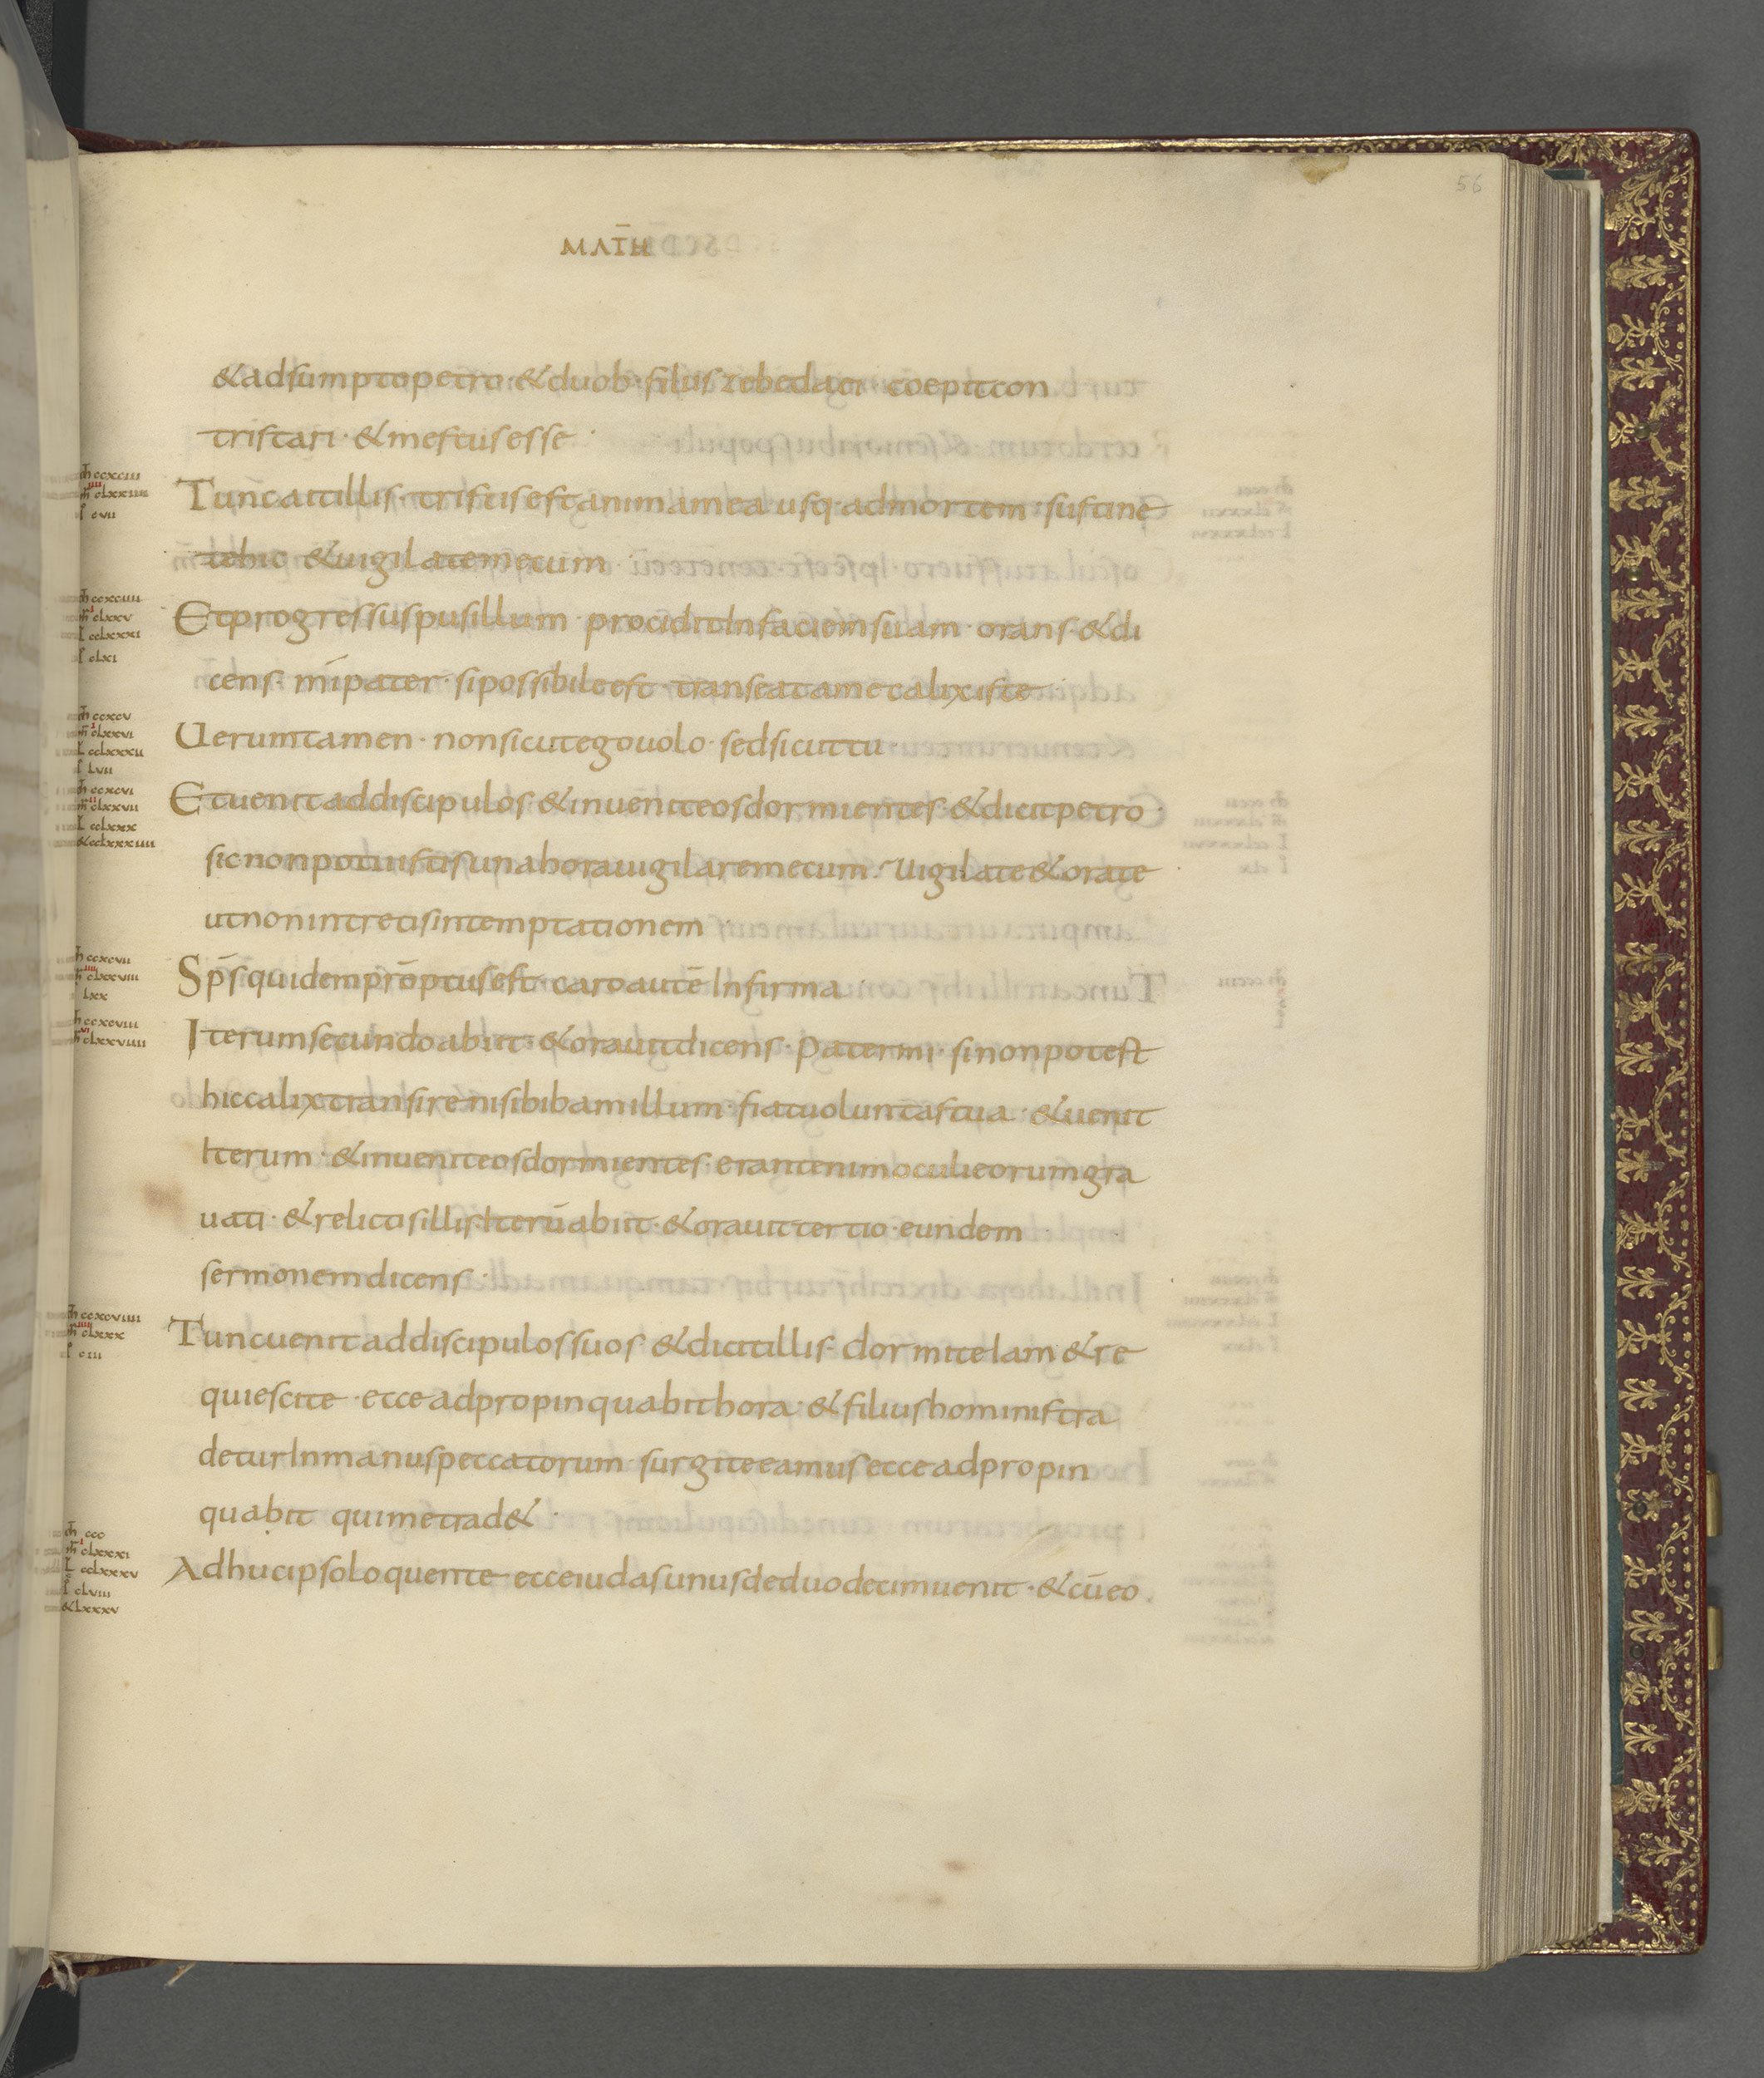 56
MATH
&adsumptopetro·&duob·filiiszebedaei·coepitcon
tristari·&mestusesse·
Tuncaitillis·tristisestanimamea·usq·admortem·sustine
tehic·&uigilatemecum·
Etprogressuspusillum·prociditInfaciemsuam·orans·&di
cens·mīpater·sipossibileest·transeatamecalixiste·
Uerumtamen·nonsicutegouolo·sedsicuttu·
Etuenitaddiscipulos·&inueniteosdormientes·&dicitpetro·
sicnonpotuistisunahorauigilaremecum·Uigilate&orate
utnonintretisintemptationem·
Sp̄squidemprōptusest·caroautēInfirma·
Iterumsecundoabiit·&orauitdicens·Patermi·sinonpotest
hiccalixtransirenisibibamillum·fiatuoluntastua·&uenit
Iterum·&inueniteosdormientes·erantenimoculieorumgra
uati·&relictisillis·Iterūabiit·&orauittertio·eundem
sermonemdicens·
Tuncuenitaddiscipulossuos·&dicitillis·dormiteIam&re
quiescite·ecceadpropinquabithora·&filiushoministra
deturInmanuspeccatorum·surgiteeamus·ecceadpropin
quabit·quimetrad&·
Adhucipsoloquente·ecceiudasunusdeduodecimuenit·&cūeo·
ccxciii
clxxiiii
cvii
ccxciiii
clxxv
cclxxxi
clxi
ccxcv
clxxvi
cclxxxii
lvii
ccxcvi
clxxvii
cclxxx
&cclxxxiiii
ccxcvii
clxxviii
lxx
ccxcviii
clxxviiii
ccxcviiii
clxxx
ciii
ccc
clxxxi
cclxxxv
clviii
&lxxxv